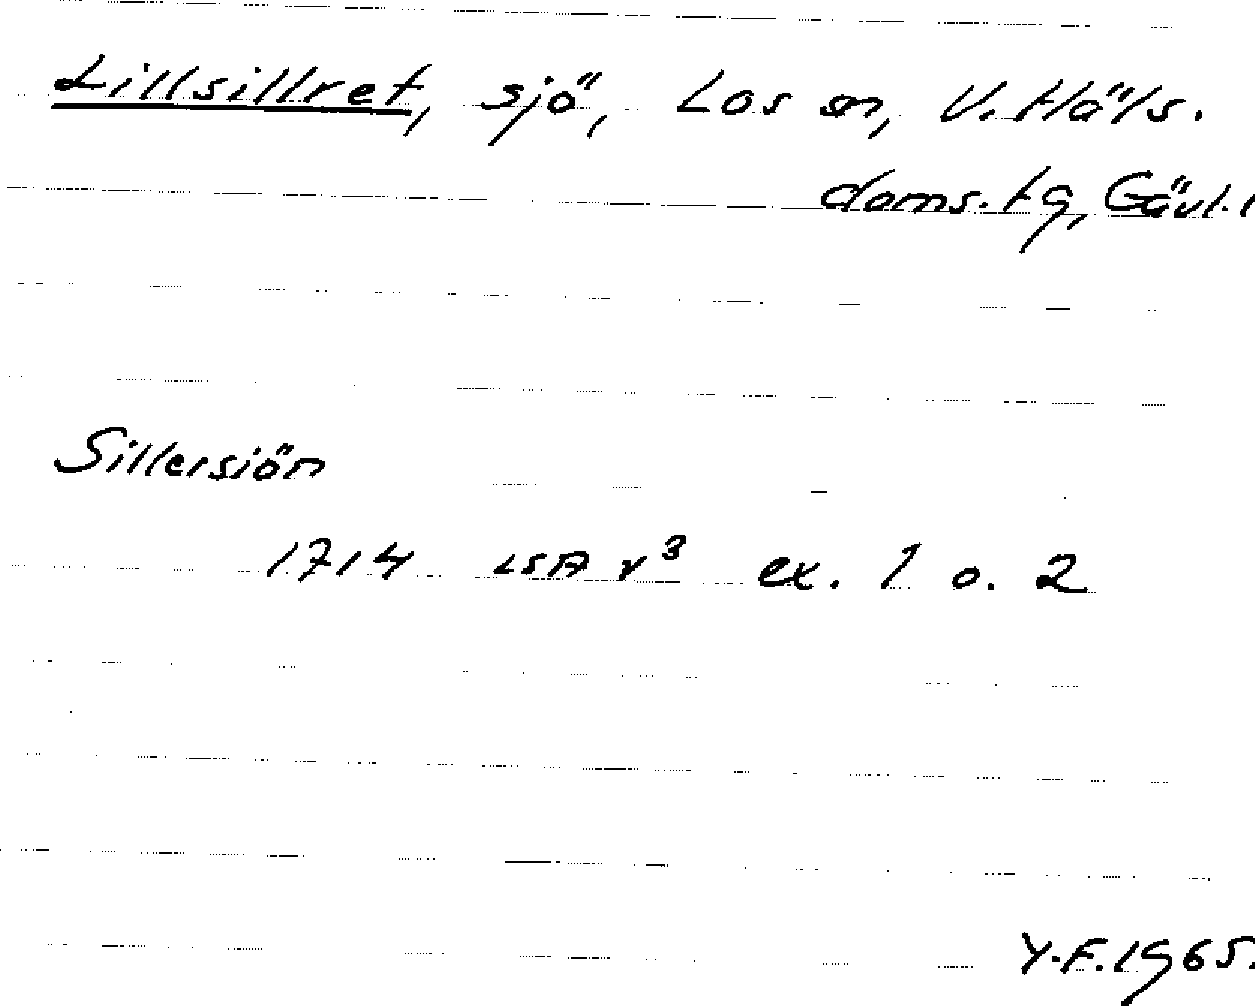 Lillsillret, sjö, Los sn, V. Häls.
doms. tg, Gävl. l
Sillersiön
1714 LSA v³ ex. 1 o. 2
Y.F. 1965.